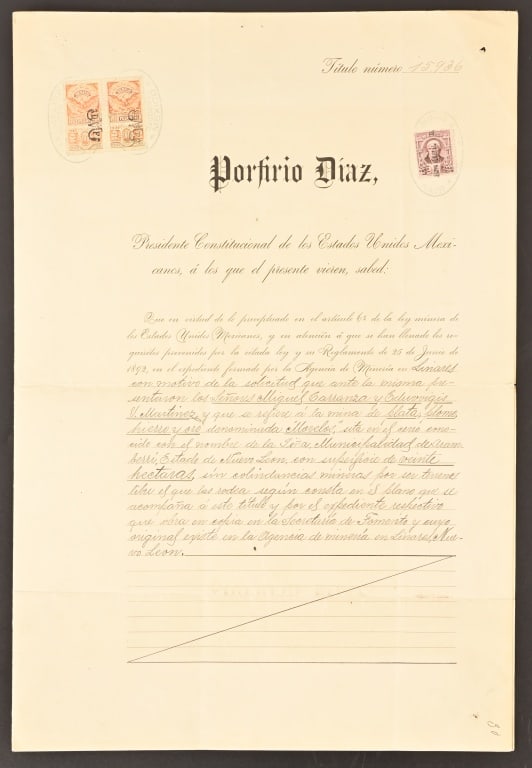 Título número 15936
Porfirio Díaz,
Presidente Constitucional de los Estados Unidos Mexi-
canos, á los que el presente vieren, sabed:
Que en virtud de lo preceptuado en el artículo 6º de la ley minera de
los Estados Unidos Mexicanos, y en atención á que se han llenado los re-
quisitos prevenidos por la citada ley y su Reglamento de 25 de Junio de
1892, en el expediente formado por la Agencia de Minería en Linares
con motivo de la solicitud que ante la misma pre-
sentaron los Señores Miguel Carranza y Eduvigis
V. Martínez, y que se refiere á la mina de plata, plomo,
hierro y oro denominada "Morelos," sita en el cerro cono-
cido con el nombre de la Peña, Municipalidad de Zaram
berri, Estado de Nuevo León, con superficie de veinte
hectaras, sin colindancias mineras por ser terreno
libre el que los rodea según consta en el plano que se
acompaña á este título y por el expediente respectivo
que obra en copia en la Secretaría de Fomento y cuyo
original existe en la Agencia de minería en Linares Nue-
vo León.